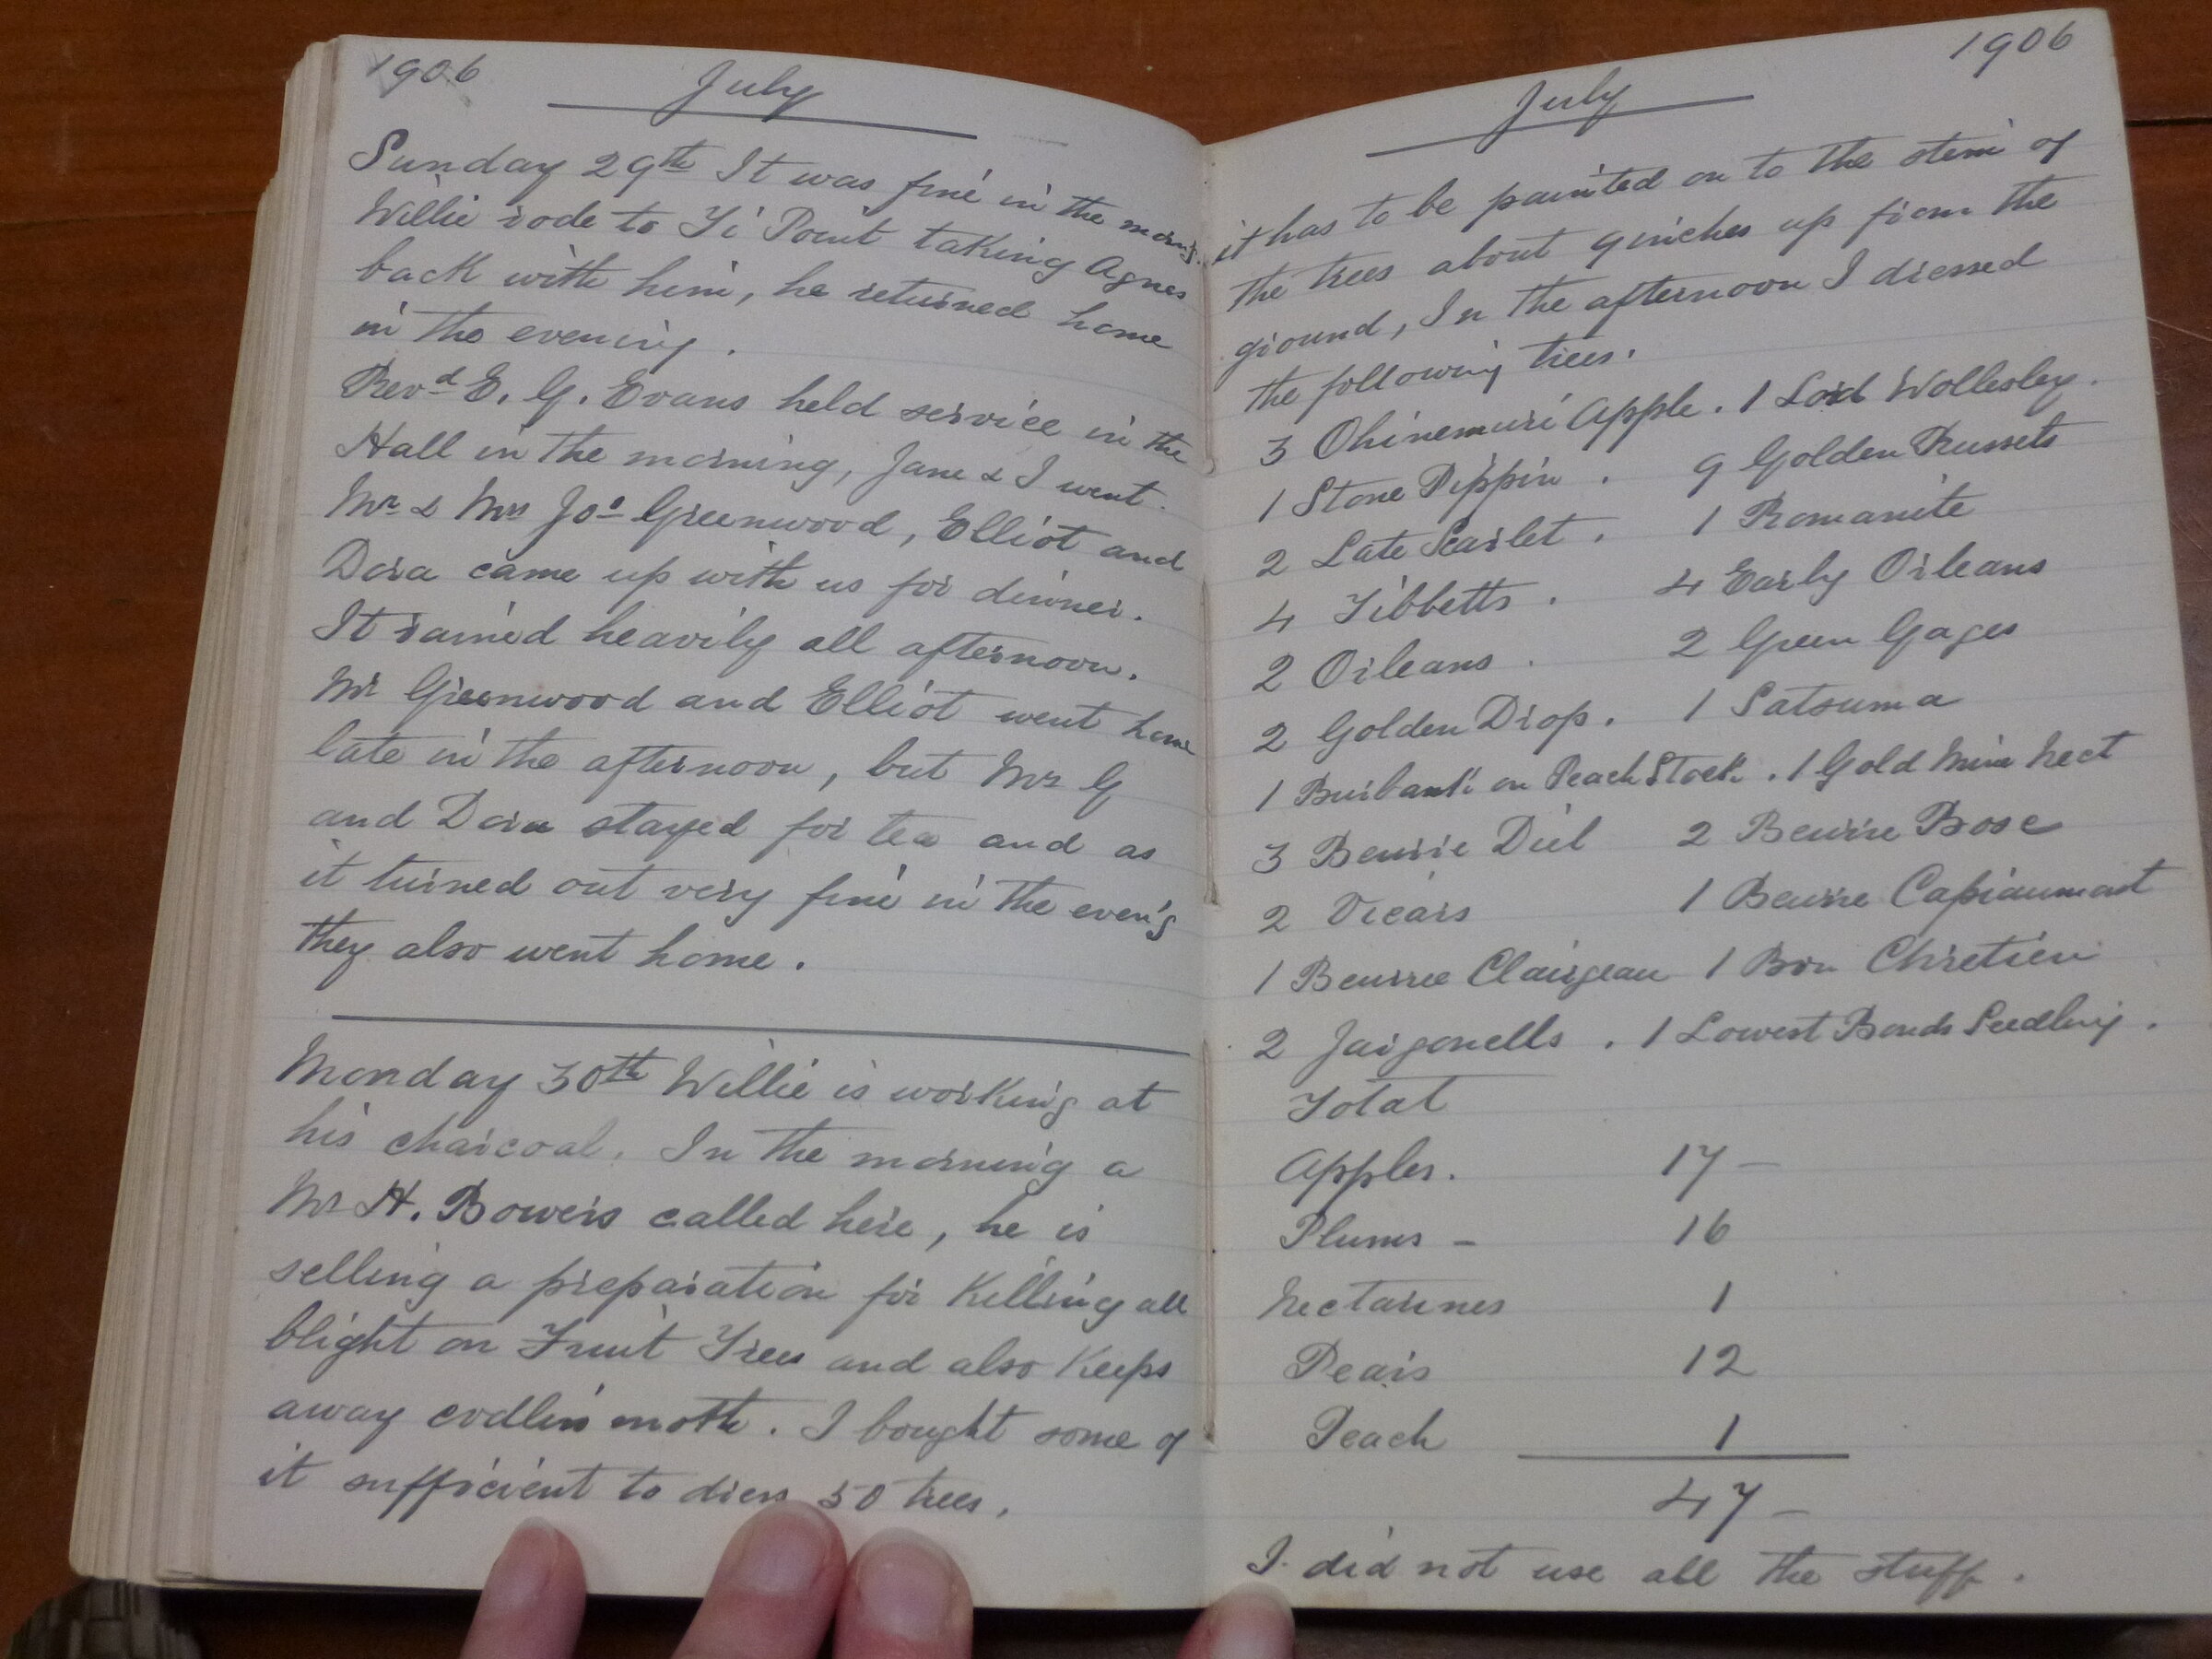 1906
July
Sunday 29th It was fine in the morng.
Willie rode to Ti Point taking Agnes
back with him, he returned home
in the evening.
Revd E. G. Evans held service in the
Hall in the morning, Jane & I went.
Mr & Mrs Jos Greenwood, Elliot and
Dora came up with us for dinner.
It rained heavily all afternoon.
Mr Greenwood and Elliot went home
late in the afternoon, but Mrs G
and Dora stayed for tea and as
it turned out very fine in the even'g
they also went home.
Monday 30th Willie is working at
his charcoal. In the morning a
Mr H. Bowers called here, he is
selling a preparation for Killing all
blight on Fruit Trees and also Keeps
away codlin moth. I bought some of
it sufficient to dress 50 trees.
1906
July
it has to be painted on to the stem of
the trees about 9 inches up from the
ground, In the afternoon I dressed
the following trees.
3 Ohinemuri Apple. 1 Lord Wollesley.
1 Stone Pippin. 9 Golden Russets
2 Late Scarlet. 1 Romanite
4 Tibbetts. 4 Early Orleans
2 Orleans. 2 Green Gages
2 Golden Drop. 1 Satsuma
1 Burbank on Peach Stock. 1 Gold Mine Nect
3 Beurre Diel 2 Beurre Bose
2 Vicars 1 Beurre Capiaumont
1 Beurree Clairgeau 1 Bon Chretien
2 Jargonells. 1 Lowest Bonds Seedling.
Total
Apples. 17 —
Plums - 16
Nectarines 1
Pears 12
Peach 1
47 —
I did not use all the stuff.